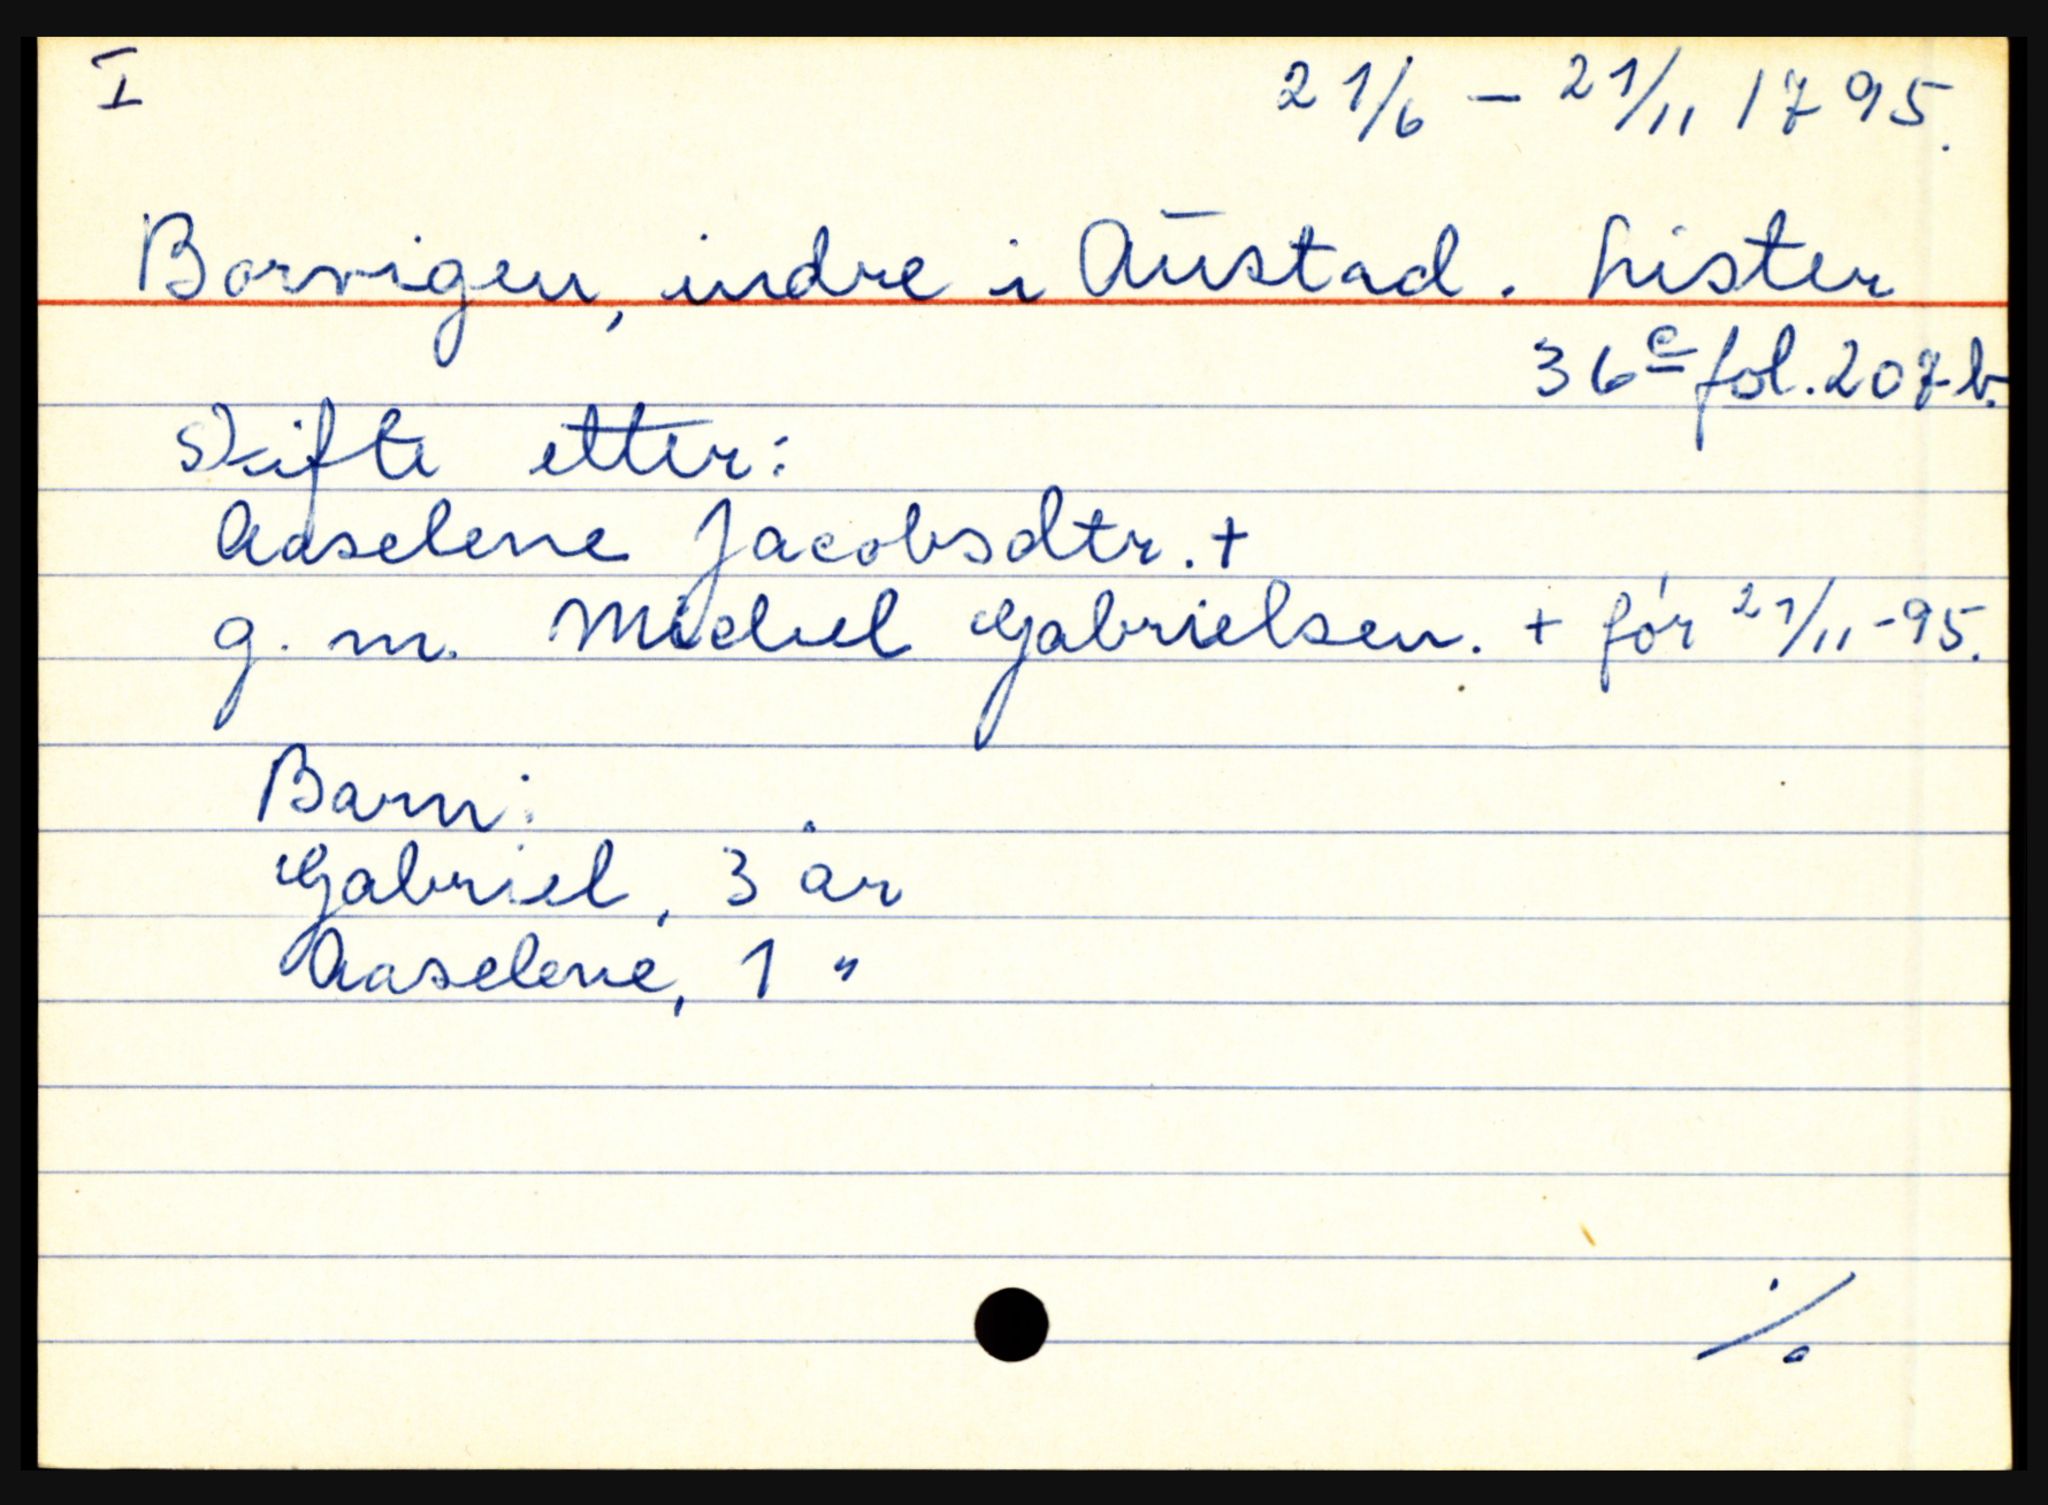 I
21/6 – 21/11 1795.
Borvigen, indre i Austad. Lister
36c fol. 207b.
Skifte etter:
Aaselene Jacobsdtr. +
g. m. Michel Gabrielsen. + før 21/11-95.
Barn:
Gabriel, 3 år
Aaselene, 1 "
./.